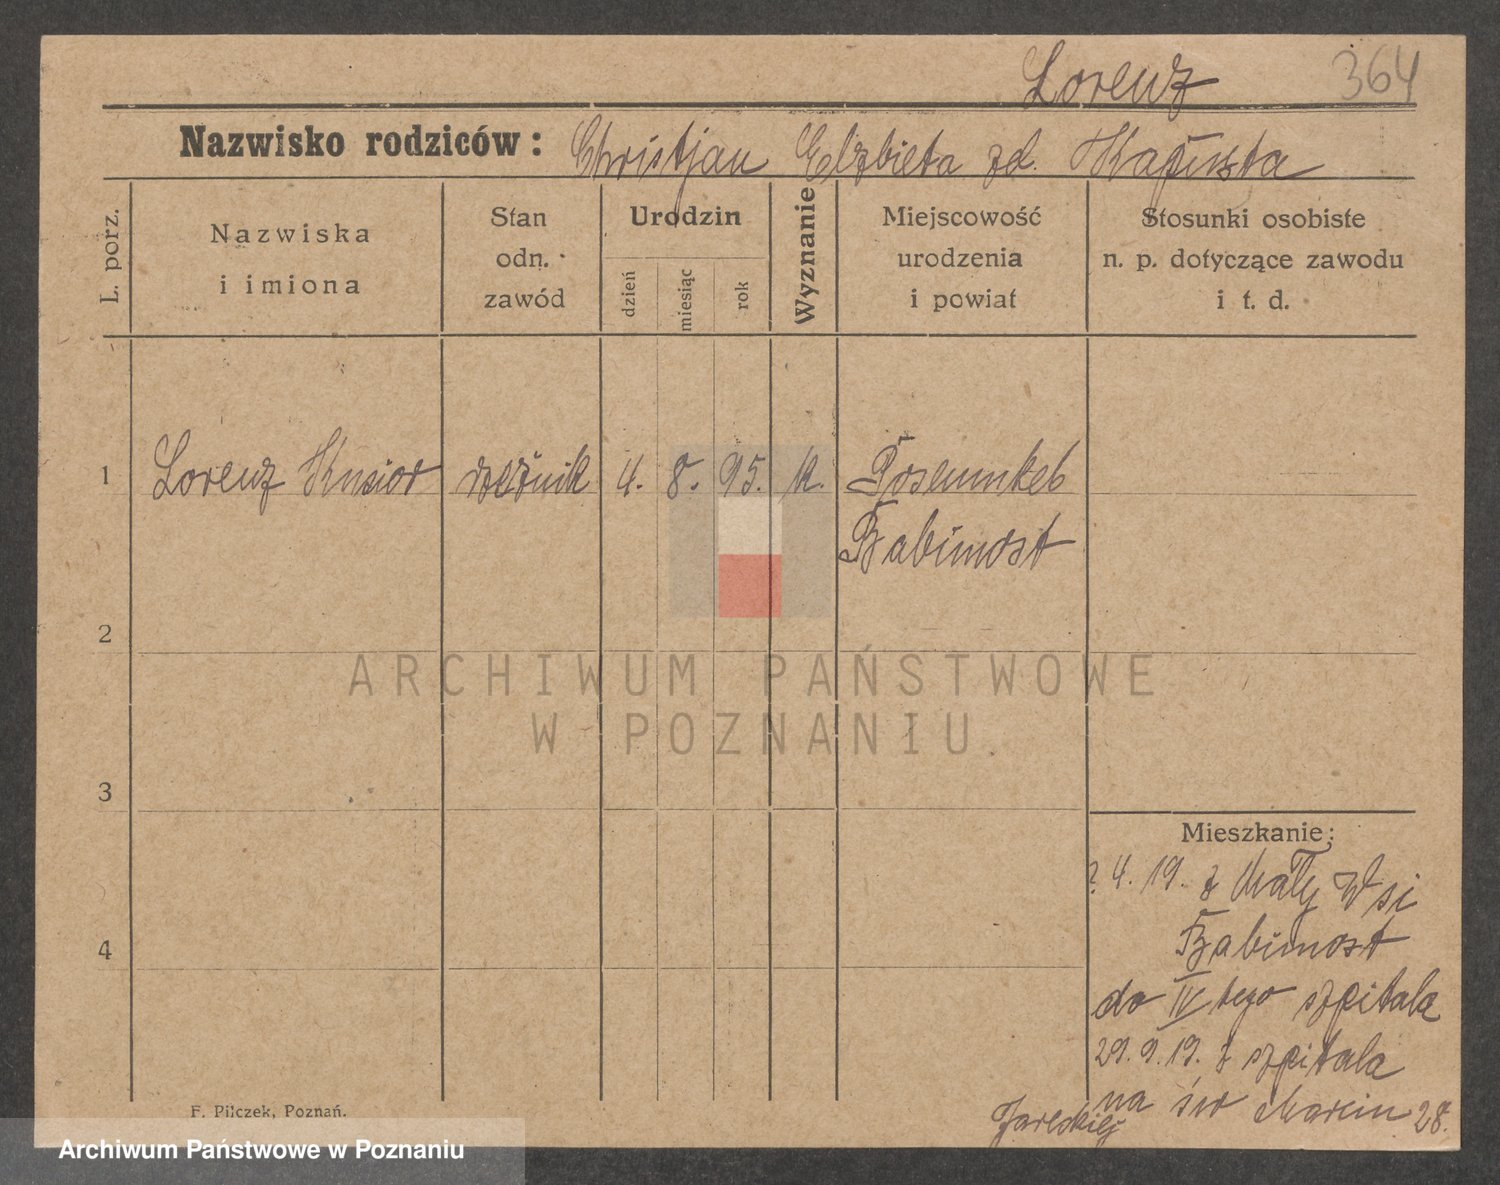 Lorenz 364
Nazwisko rodziców: Christjan Elżbieta zd. Kapusta
L. porz.
Nazwiska
i imiona
Stan
odn.
zawód
Urodzin
dzień
miesiąc
rok
Wyznanie
Miejscowość
urodzenia
i powiat
Stosunki osobiste
n. p. dotyczące zawodu
i t. d.
1 Lorenz Kusior rzeźnik 4. 8. 95. k.
Babimost
2
ARCHIWUM PAŃSTWOWE
W POZNANIU
3
Mieszkanie:
4. 19. z Małej Wsi
4 Babimost
do IV tego szpitala
29. 9. 19. z szpitala
na św Marcin 28.
F. Pilczek, Poznań.
Archiwum Państwowe w Poznaniu